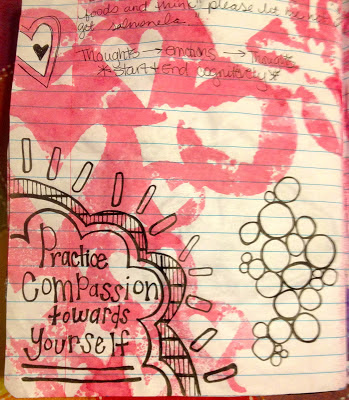 foods and think "please let
got salmonela."
Thoughts → emotions → Thoughts
*Start + End cognitively*
Practice
Compassion
towards
Yourself